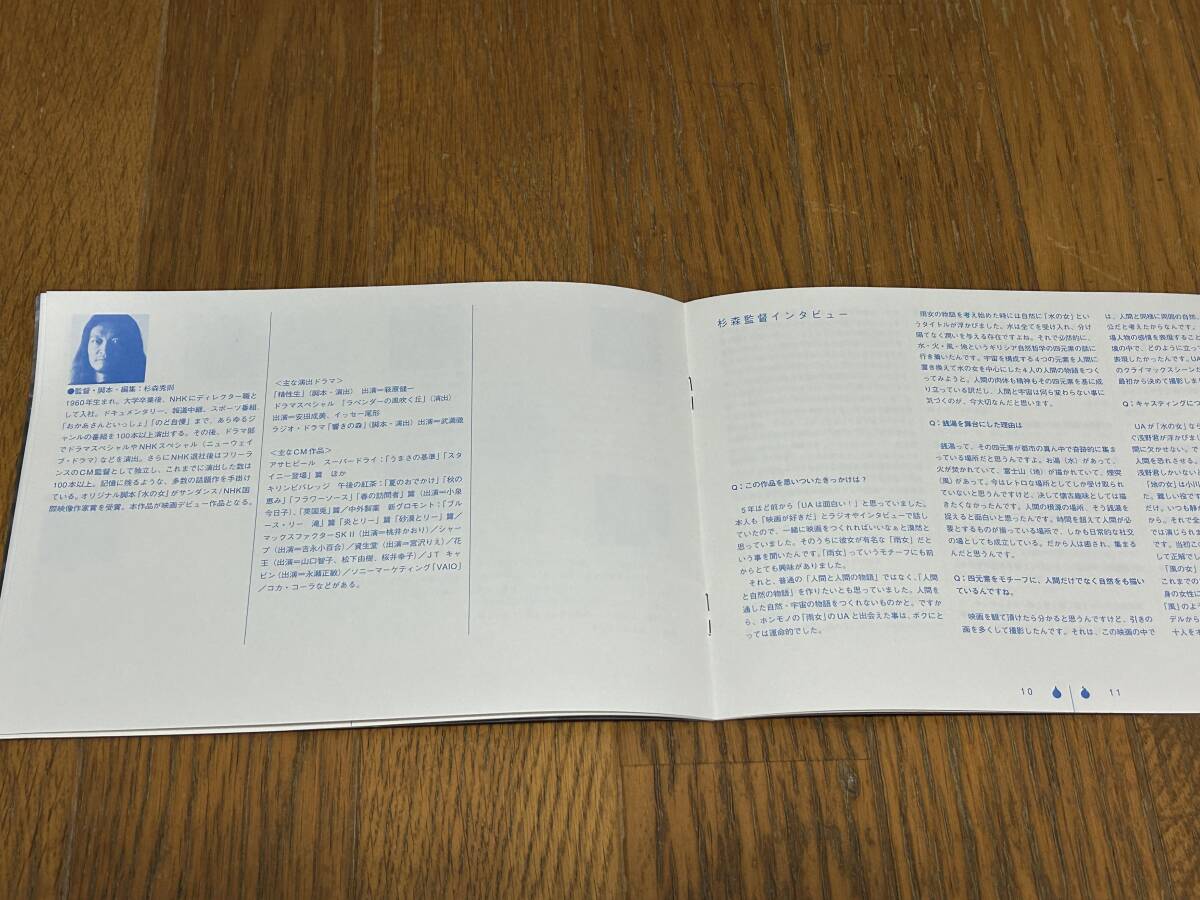 ●監督・脚本・編集：杉森秀則
1960年生まれ。大学卒業後、NHKにディレクター職と
して入社。ドキュメンタリー、報道中継、スポーツ番組、
「おかあさんといっしょ」「のど自慢」まで、あらゆるジ
ャンルの番組を100本以上演出する。その後、ドラマ部
でドラマスペシャルやNHKスペシャル（ニューウェイ
ブ・ドラマ）などを演出。さらにNHK退社後はフリーラ
ンスのCM監督として独立し、これまでに演出した数は
100本以上。記憶に残るような、多数の話題作を手掛け
ている。オリジナル脚本「水の女」がサンダンス/NHK国
際映像作家賞を受賞。本作品が映画デビュー作品となる。
＜主な演出ドラマ＞
「精性生」（脚本・演出） 出演＝萩原健一
ドラマスペシャル 「ラベンダーの風吹く丘」（演出）
出演＝安田成美、イッセー尾形
ラジオ・ドラマ「響きの森」（脚本・演出）出演＝武満徹
＜主なCM作品＞
アサヒビール スーパードライ：「うまさの基準」「スタ
イニー登場」篇 ほか
キリンビバレッジ 午後の紅茶：「夏のおでかけ」「秋の
恵み」「フラワーソース」「春の訪問者」篇（出演＝小泉
今日子）、「英国兎」篇／中外製薬 新グロモント：「ブル
ース・リー 滝」篇「炎とリー」篇「砂漠とリー」篇／
マックスファクターSKⅡ（出演＝桃井かおり）／シャー
プ（出演＝吉永小百合）／資生堂（出演＝宮沢りえ）／花
王（出演＝山口智子、松下由樹、桜井幸子）／JT キャ
ビン（出演＝永瀬正敏）／ソニーマーケティング「VAIO」
／コカ・コーラなどがある。
杉森監督インタビュー
Q：この作品を思いついたきっかけは？
5年ほど前から「UAは面白い！」と思っていました。
本人も「映画が好きだ」とラジオやインタビューで話し
ていたので、一緒に映画をつくれればいいなぁと漠然と
思っていました。そのうちに彼女が有名な「雨女」だと
いう事を聞いたんです。「雨女」っていうモチーフにも前
からとても興味がありました。
それと、普通の「人間と人間の物語」ではなく、「人間
と自然の物語」を作りたいとも思っていました。人間を
通した自然・宇宙の物語をつくれないものかと。ですか
ら、ホンモノの「雨女」のUAと出会えた事は、ボクにと
っては運命的でした。
雨女の物語を考え始めた時には自然に「水の女」とい
うタイトルが浮かびました。水は全てを受け入れ、分け
隔てなく潤いを与える存在ですよね。それで必然的に、
水・火・風・地というギリシア自然哲学の四元素の話に
行き着いたんです。宇宙を構成する4つの元素を人間に
置き換えて水の女を中心にした4人の人間の物語をつく
ってみようと。人間の肉体も精神もその四元素を基に成
り立っている訳だし、人間と宇宙は何ら変わらない事に
気づくのが、今大切なんだと思います。
Q：銭湯を舞台にした理由は
銭湯って、その四元素が都市の真ん中で奇跡的に集ま
っている場所だと思うんですよ。お湯（水）があって、
火が焚かれていて、富士山（地）が描かれていて、煙突
（風）がある。今はレトロな場所としてしか受け取られ
ていないと思うんですけど、決して懐古趣味としては描
きたくなかったんです。人間の根源の場所、そう銭湯を
捉えると面白いと思ったんです。時間を超えて人間が必
要とするものが揃っている場所で、しかも日常的な社交
の場としても成立している。だから人は癒され、集まる
んだと思うんです。
Q：四元素をモチーフに、人間だけでなく自然をも描い
ているんですね。
映画を観て頂けたら分かると思うんですけど、引きの
画を多くして撮影したんです。それは、この映画の中で
は、人間と同様に周囲の自然、
公だと考えたからなんです。
場人物の感情を表現すること
境の中で、どのように立って
表現したかったんです。UA
のクライマックスシーンだ
最初から決めて撮影しま
Q：キャスティングにつ
UAが「水の女」なら
ぐ浅野君が浮かびま
間に欠かせない。で
人間を恐れさせる。
浅野君しかいないと
「地の女」は小川
た。難しい役です
だけ。いつも静か
から。それで全
では演じられま
です。当初こ
して正解でし
「風の女」
これまでの
身の女性に
「風」のよ
デルから
十人を本
10 11